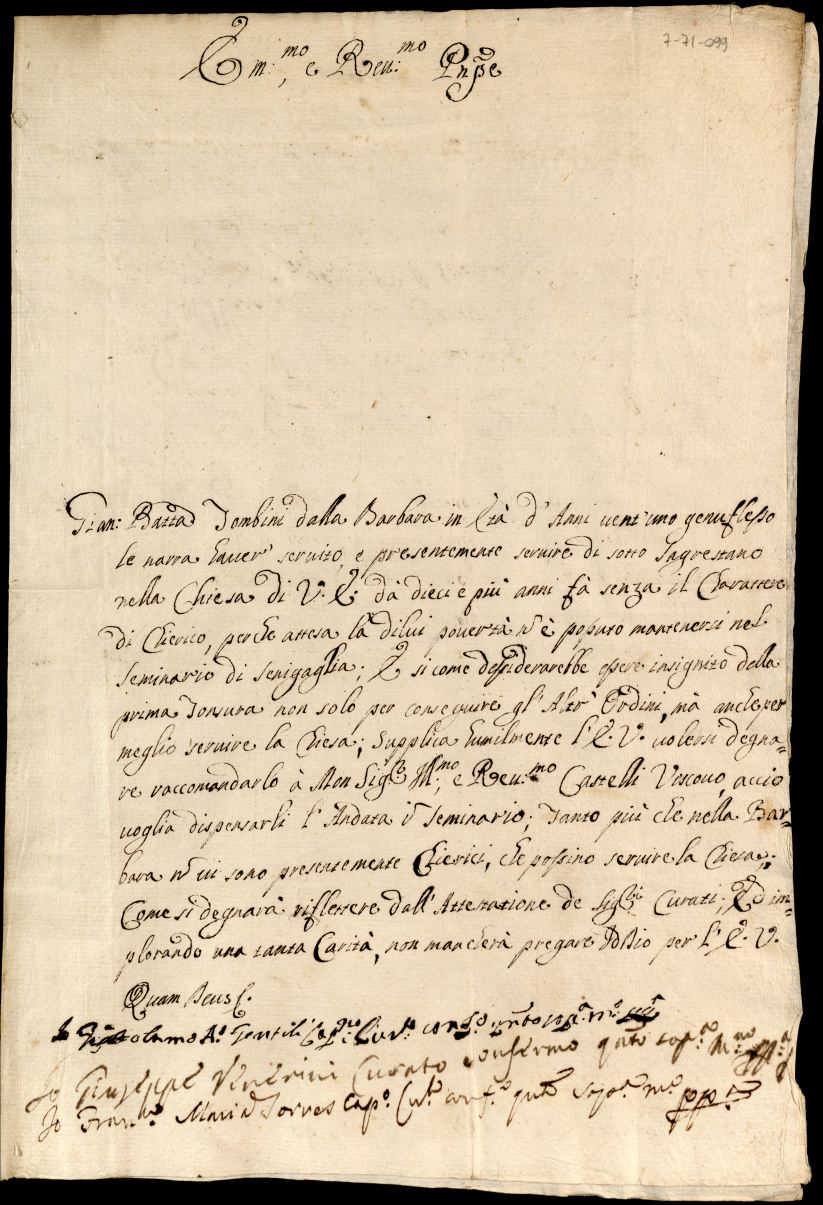 7-71-099
Em:mo, e Reu:mo Pnpe
Gian: Batta Tombini dalla Barbara in Età d' Anni uent' uno genuflesso
le narra hauer' seruito, e presentemente seruire di sotto Sagrestano
nella Chiesa di V. E. dà dieci e più anni fà senza il Charattere
di Chierico, perche attesa la dilui pouertà ñ è possuto mantenersi nel
Seminario di Senigaglia; E si come dessiderarebbe essere insignito della
prima Tonsura non solo per conseguire gl' Altr' Ordini, mà anche per
meglio seruire la Chiesa; Supplica humilmente l' E. V. uolersi degna=
re raccomandarlo à Mon Sigre Ill:mo, e Reu:mo Castelli Vescouo, acciò
uoglia dispensarli l' Andata ĩ Seminario; Tanto più che nella Bar=
bara ñ ui sono presentemente Chierici, che possino seruire la Chiesa;
Come si degnarà riflettere dall' Attestatione de Sigri Curati; Ed im=
plorando una tanta Carità, non mancherà pregare Iddio per l' E. V.
Quam Deus &.
Io Girolamo Ao Gentili Curto
Io Giuseppe Venerini Curato confermo qto sopa
Io Franco Maria Torres Capo Cuto conf.o qto sopa mo pp.a